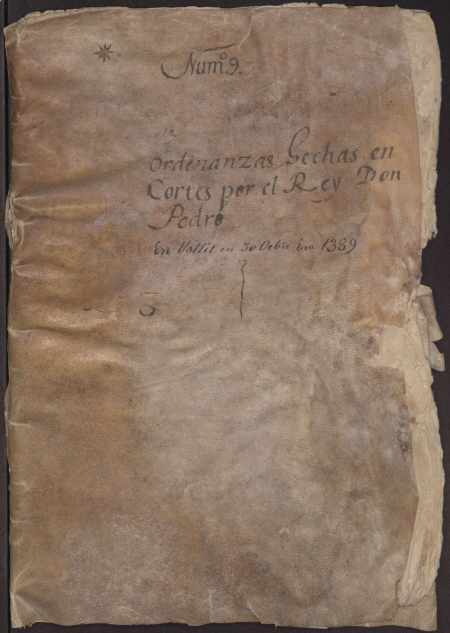 Num.º 9.
Ordenanzas Fechas en
Cortes por el Rey Don
Pedro
En Vallit en 30 Octbre Era 1389